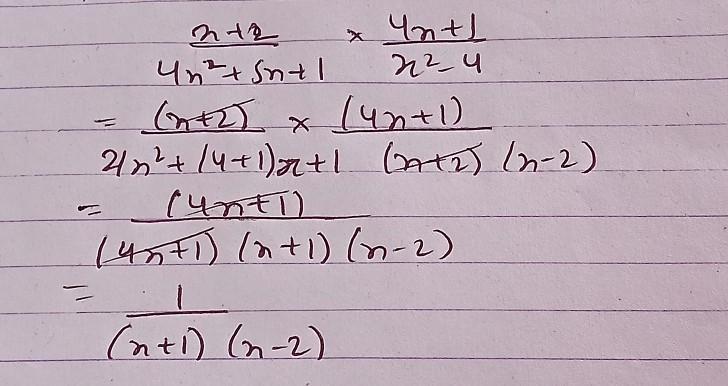 x+2 / 4x²+5x+1 × 4x+1 / x²-4
= (x+2) / 4x²+(4+1)x+1 × (4x+1) / (x+2) (x-2)
= (4x+1) / (4x+1) (x+1) (x-2)
= 1 / (x+1) (x-2)